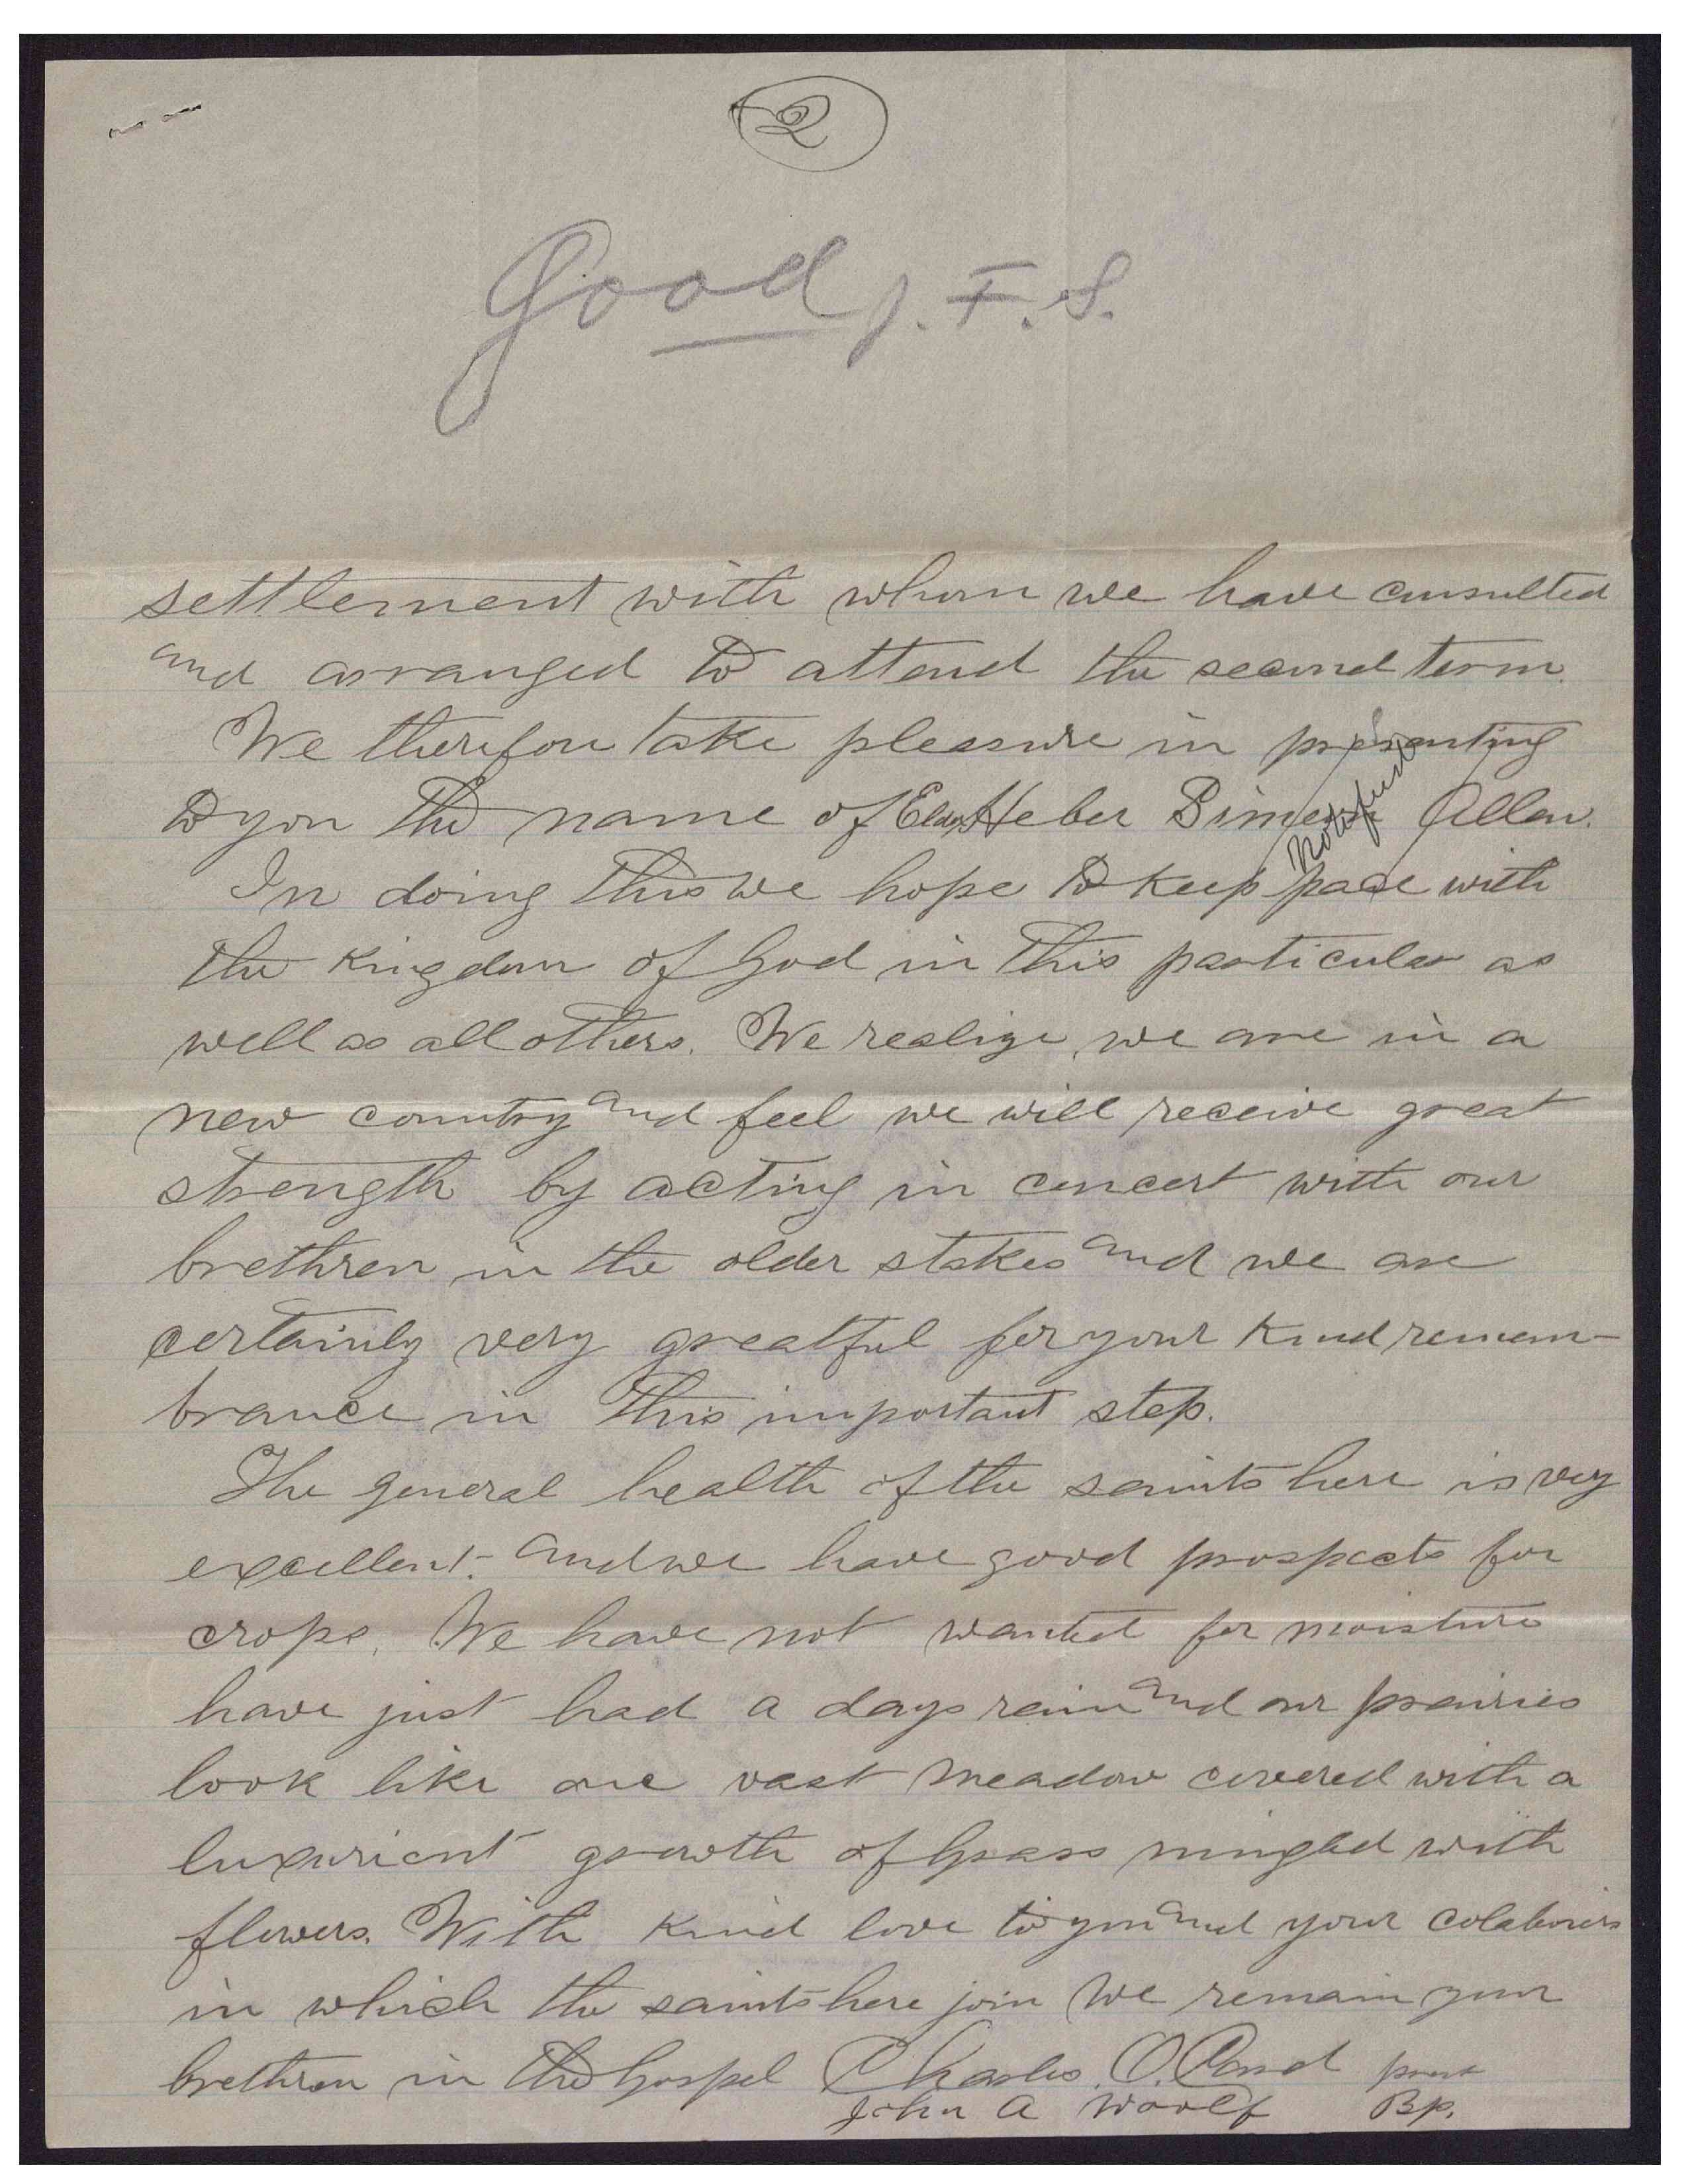 2
Good J. F. S.
settlement with whom we have consulted
and arranged to attend the second term.
We therefore take pleasure in presenting
to you the name of Elder Heber Simeon Allen.
Notified
In doing this we hope to keep pace with
the Kingdom of God in this particular as
well as all others. We realize we are in a
new country and feel we will receive great
strength by acting in concert with our
brethren in the older stakes and we are
certainly very greatful for your kind remem-
brance in this important step.
The general health of the saints here is very
excellent. and we have good prospects for
crops. We have not wanted for moisture
have just had a days rain and our prairies
look like one vast meadow covered with a
luxurient growth of grass mingled with
flowers. With kind love to you and your colaborers
in which the saints here join We remain your
brethren in the Gospel Charles. O. Card prest
John A Woolf Bp.